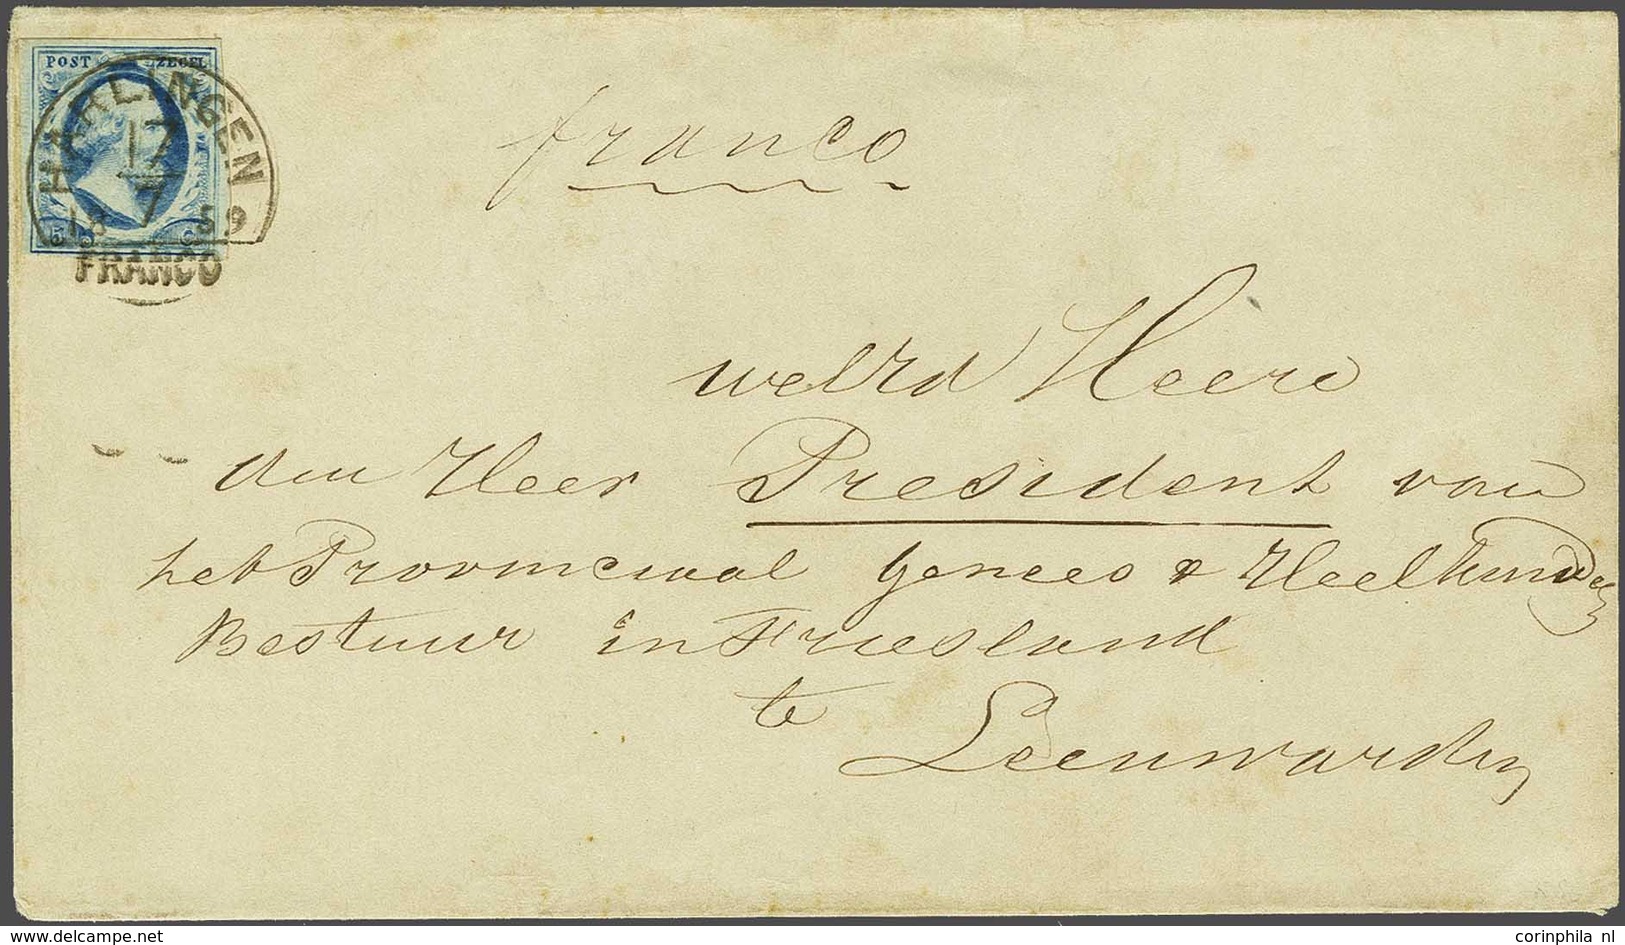 POST ZEGEL
HARLINGEN
17
7
18 59
5 C
FRANCO
franco
WelEd Heere
den Heer President van
het Provinciaal Genees & Heelkundig
Bestuur in Friesland
te
Leeuwarden
corinphila nl